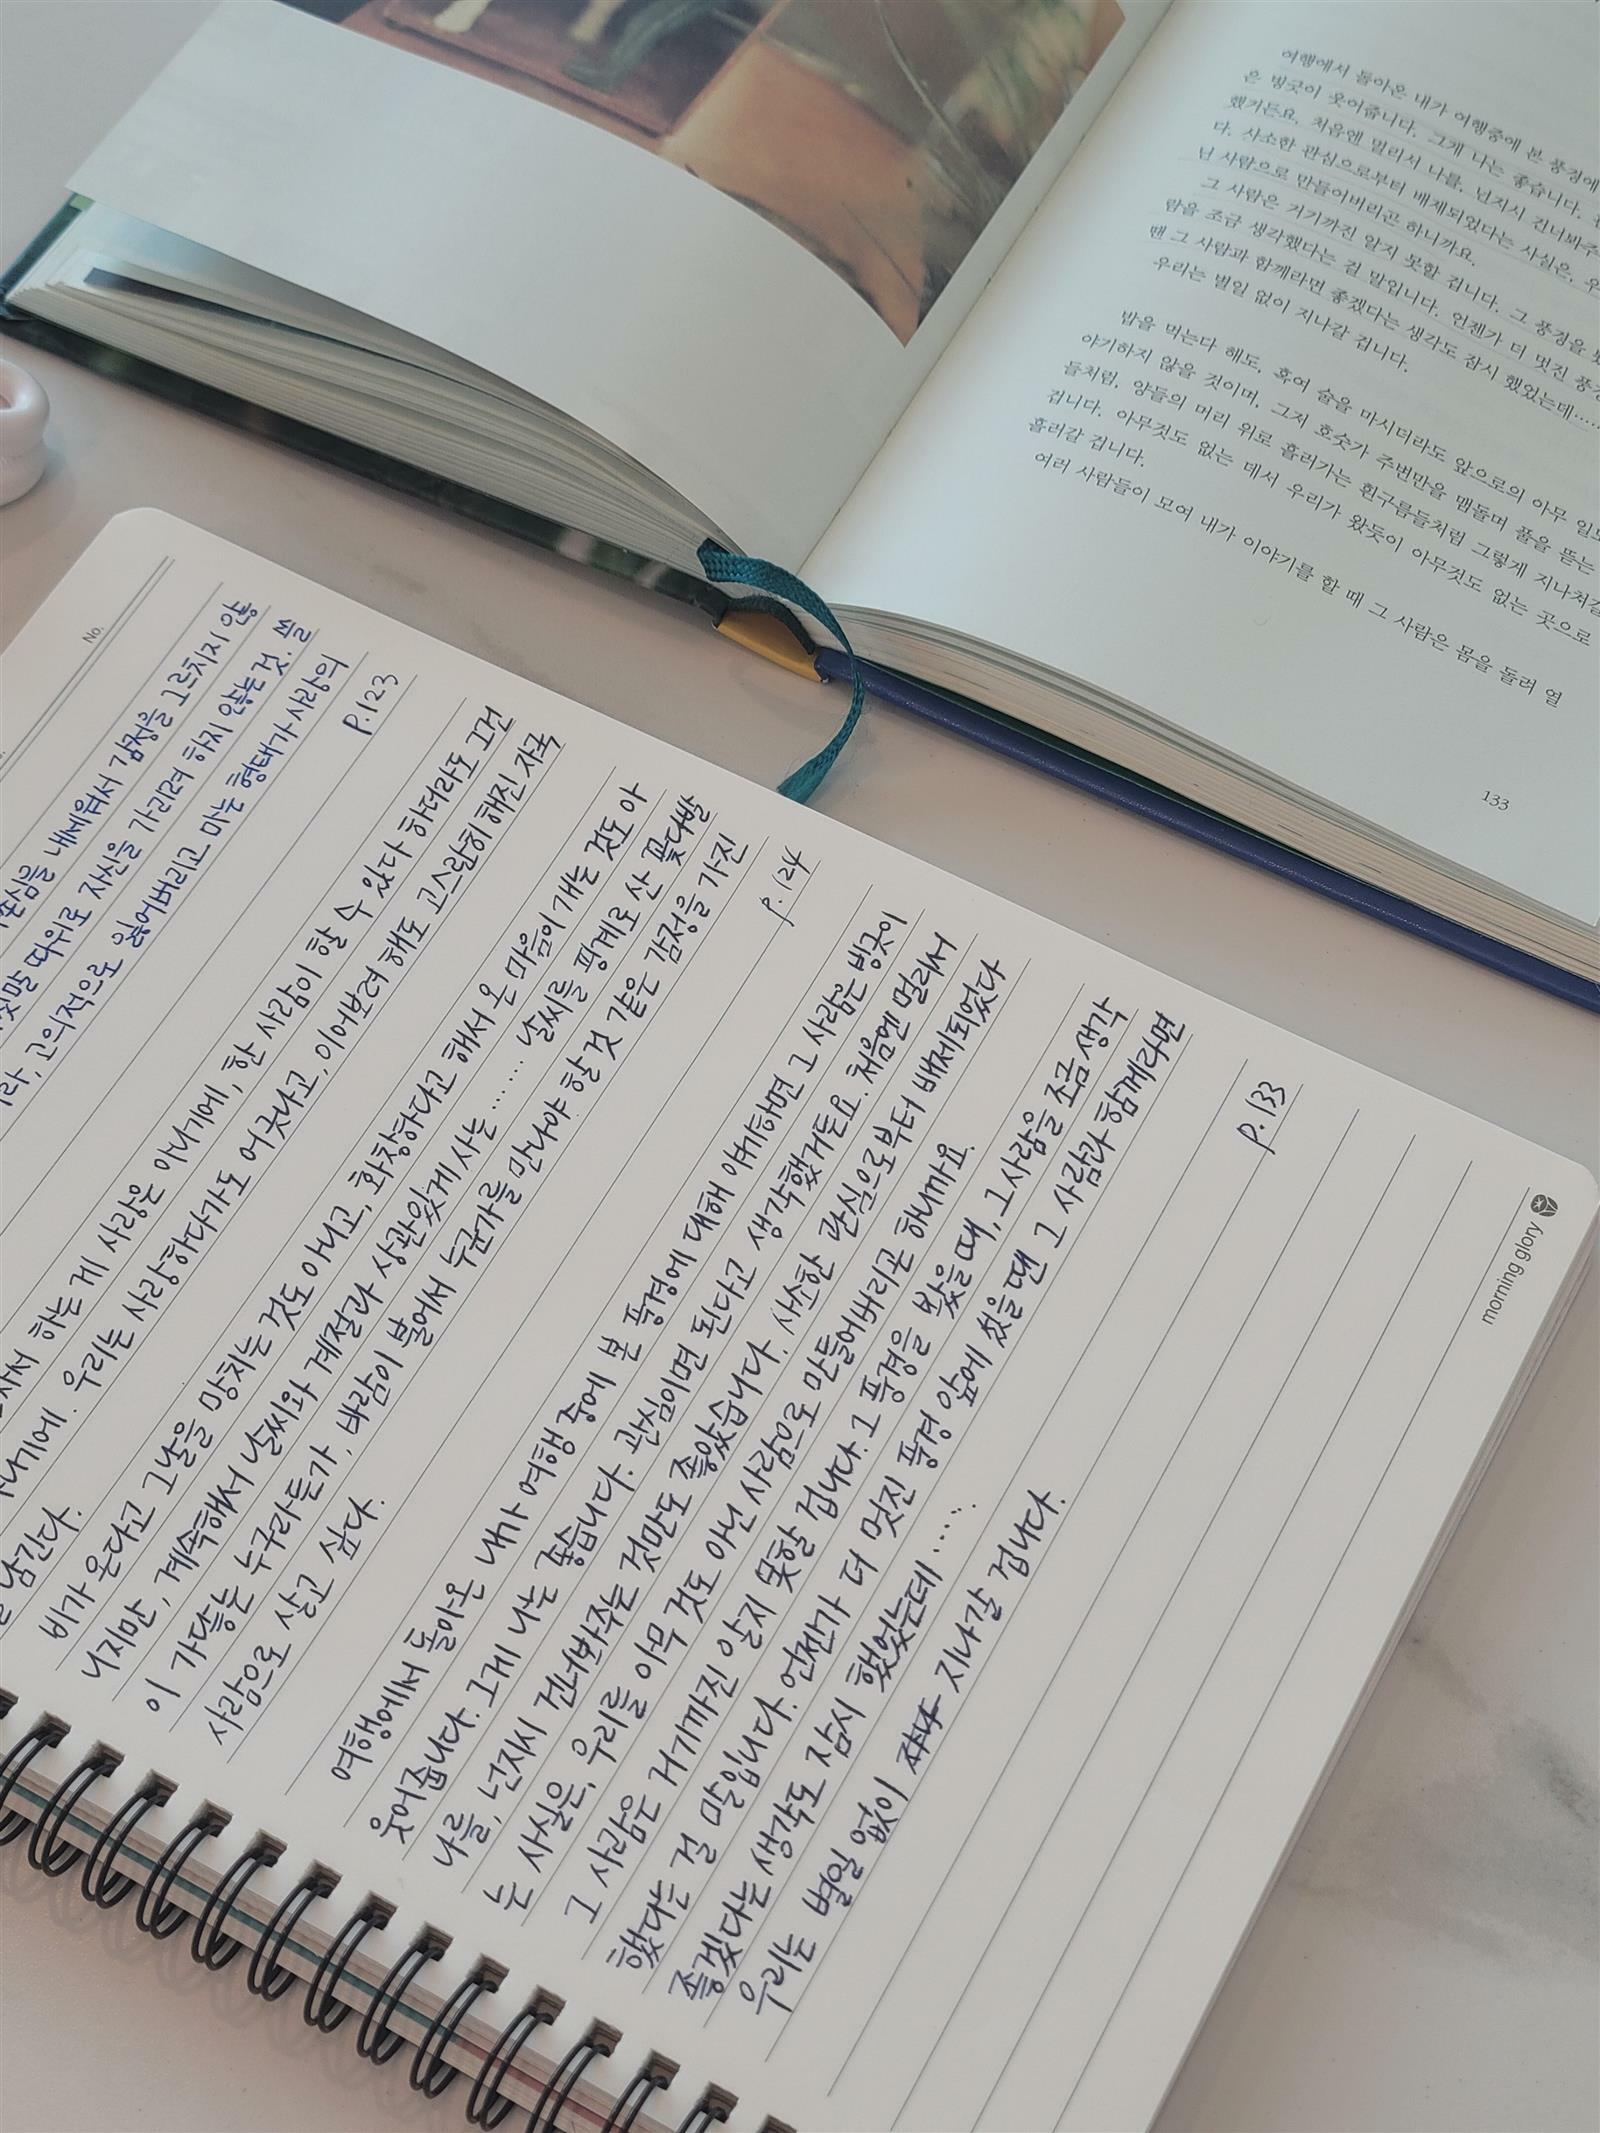 여행에서 돌아온 내가 여행중에 본 풍경에
은 빙긋이 웃어줍니다. 그게 나는 좋습니다.
했거든요. 처음엔 멀리서 나를, 넌지시 건너봐주
다. 사소한 관심으로부터 배제되었다는 사실은, 우
닌 사람으로 만들어버리곤 하니까요.
그 사람은 거기까진 알지 못할 겁니다. 그 풍경을 봤
람을 조금 생각했다는 걸 말입니다. 언젠가 더 멋진 풍경
땐 그 사람과 함께라면 좋겠다는 생각도 잠시 했었는데……
우리는 별일 없이 지나갈 겁니다.
밥을 먹는다 해도, 혹여 술을 마시더라도 앞으로의 아무 일도
야기하지 않을 것이며, 그저 호숫가 주변만을 맴돌며 풀을 뜯는
들처럼, 양들의 머리 위로 흘러가는 흰구름들처럼 그렇게 지나쳐갈
겁니다. 아무것도 없는 데서 우리가 왔듯이 아무것도 없는 곳으로
흘러갈 겁니다.
여러 사람들이 모여 내가 이야기를 할 때 그 사람은 몸을 돌려 열
133
No.
내세워서 감정을 그르치지 않
따위로 자신을 가리려 하지 않는 것. 쓸
고의적으로 잃어버리고 마는 형태가 사랑의
P.123
하는 게 사랑은 아니기에, 한 사람이 할 수 있다 하더라도 그건
우리는 사랑하다가도 어긋나고, 이어보려 해도 고스란히 해진 자국
남긴다.
비가 온다고 그날을 망치는 것도 아니고, 화창하다고 해서 온 마음이 개는 것도 아
니지만, 계속해서 날씨와 계절과 상관있게 사는 …… 날씨를 핑계로 산 꽃다발
이 가닿는 누구라든가, 바람이 불어서 누군가를 만나야 할 것 같은 감정을 가진
사람으로 살고 싶다.
P.124
여행에서 돌아온 내가 여행 중에 본 풍경에 대해 얘기하면 그 사람은 빙긋이
웃어줍니다. 그게 나는 좋습니다. 관심이면 된다고 생각했거든요. 처음엔 멀리서
나를, 넌지시 건너봐주는 것만도 좋았습니다. 사소한 관심으로부터 배제되었다
는 사실은, 우리를 아무 것도 아닌 사람으로 만들어버리곤 하니까요.
그 사람은 거기까진 알지 못할 겁니다. 그 풍경을 봤을 때, 그 사람을 조금 생각
했다는 걸 말입니다. 언젠가 더 멋진 풍경 앞에 섰을 땐 그 사람과 함께라면
좋겠다는 생각도 잠시 했었는데 …….
우리는 별일 없이 지나갈 겁니다.
P.133
morning glory